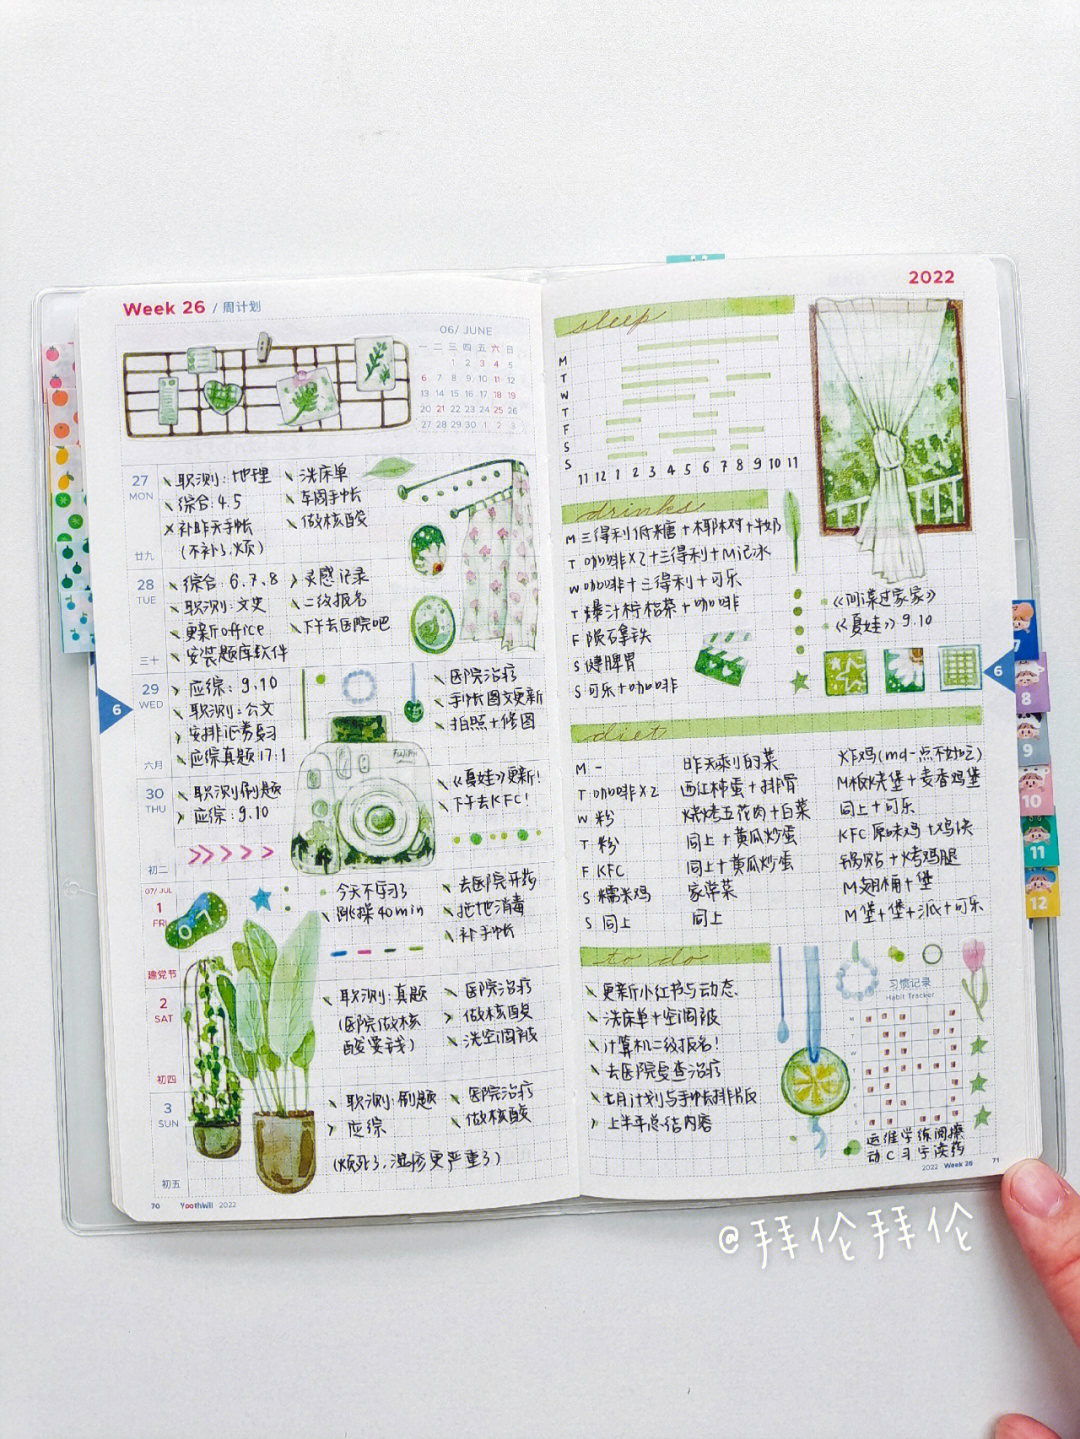 Week 26 / 周计划
06/ JUNE
一 二 三 四 五 六 日
1 2 3 4 5
6 7 8 9 10 11 12
13 14 15 16 17 18 19
20 21 22 23 24 25 26
27 28 29 30 1 2 3
27
MON
廿九
职测:地理
综合:4.5
补昨天手帐
(不补了,烦)
洗床单
车周手帐
做核酸
28
TUE
三十
综合:6.7.8
职测:文史
更新office
安装题库软件
灵感记录
二级报名
下午去医院吧
29
WED
六月
应综:9.10
职测:公文
安排证券复习
应综真题17:1
医院治疗
手帐图文更新
拍照+修图
6
30
THU
初二
职测刷题
应综:9.10
《夏娃》更新!
下午去KFC!
07/ JUL
1
FRI
趣党节
今天不学习了
跳操40min
去医院开药
拖地消毒
补手帐
2
SAT
初四
职测:真题
(医院做核
酸要钱)
医院治疗
做核酸
洗空调被
3
SUN
初五
职测:刷题
应综
医院治疗
做核酸
(烦死了,湿疹更严重了)
70 Youthwill 2022
2022
sleep
M
T
W
T
F
S
S
11 12 1 2 3 4 5 6 7 8 9 10 11
drinks
M 三得利低糖+椰椰对+牛奶
T 咖啡X2+三得利+M记冰
W 咖啡+三得利+可乐
T 爆汁柠檬茶+咖啡
F 陨石拿铁
S 健脾胃
S 可乐+咖啡
《阿谋过家家》
《夏娃》9.10
6
7
8
9
10
11
12
diet
M - 昨天剩的菜 炸鸡(md一点不好吃)
T 咖啡X2 西红柿蛋+排骨 M板烧堡+麦香鸡堡
W 粉 烧烤五花肉+白菜 同上+可乐
T 粉 同上+黄瓜炒蛋 KFC原味鸡+鸡块
F KFC 同上+黄瓜炒蛋 锅贴+烤鸡腿
S 糯米鸡 家常菜 M翅桶+堡
S 同上 同上 M堡+堡+派+可乐
to do
更新小红书与动态.
洗床单+空调被
计算机二级报名!
去医院复查治疗
七月计划与手帐排版
上半年总结内容
习惯记录
Habit Tracker
M
T
W
T
F
S
S
运维学练阅操
动C习字读药
2022 Week 26 71
@拜伦拜伦